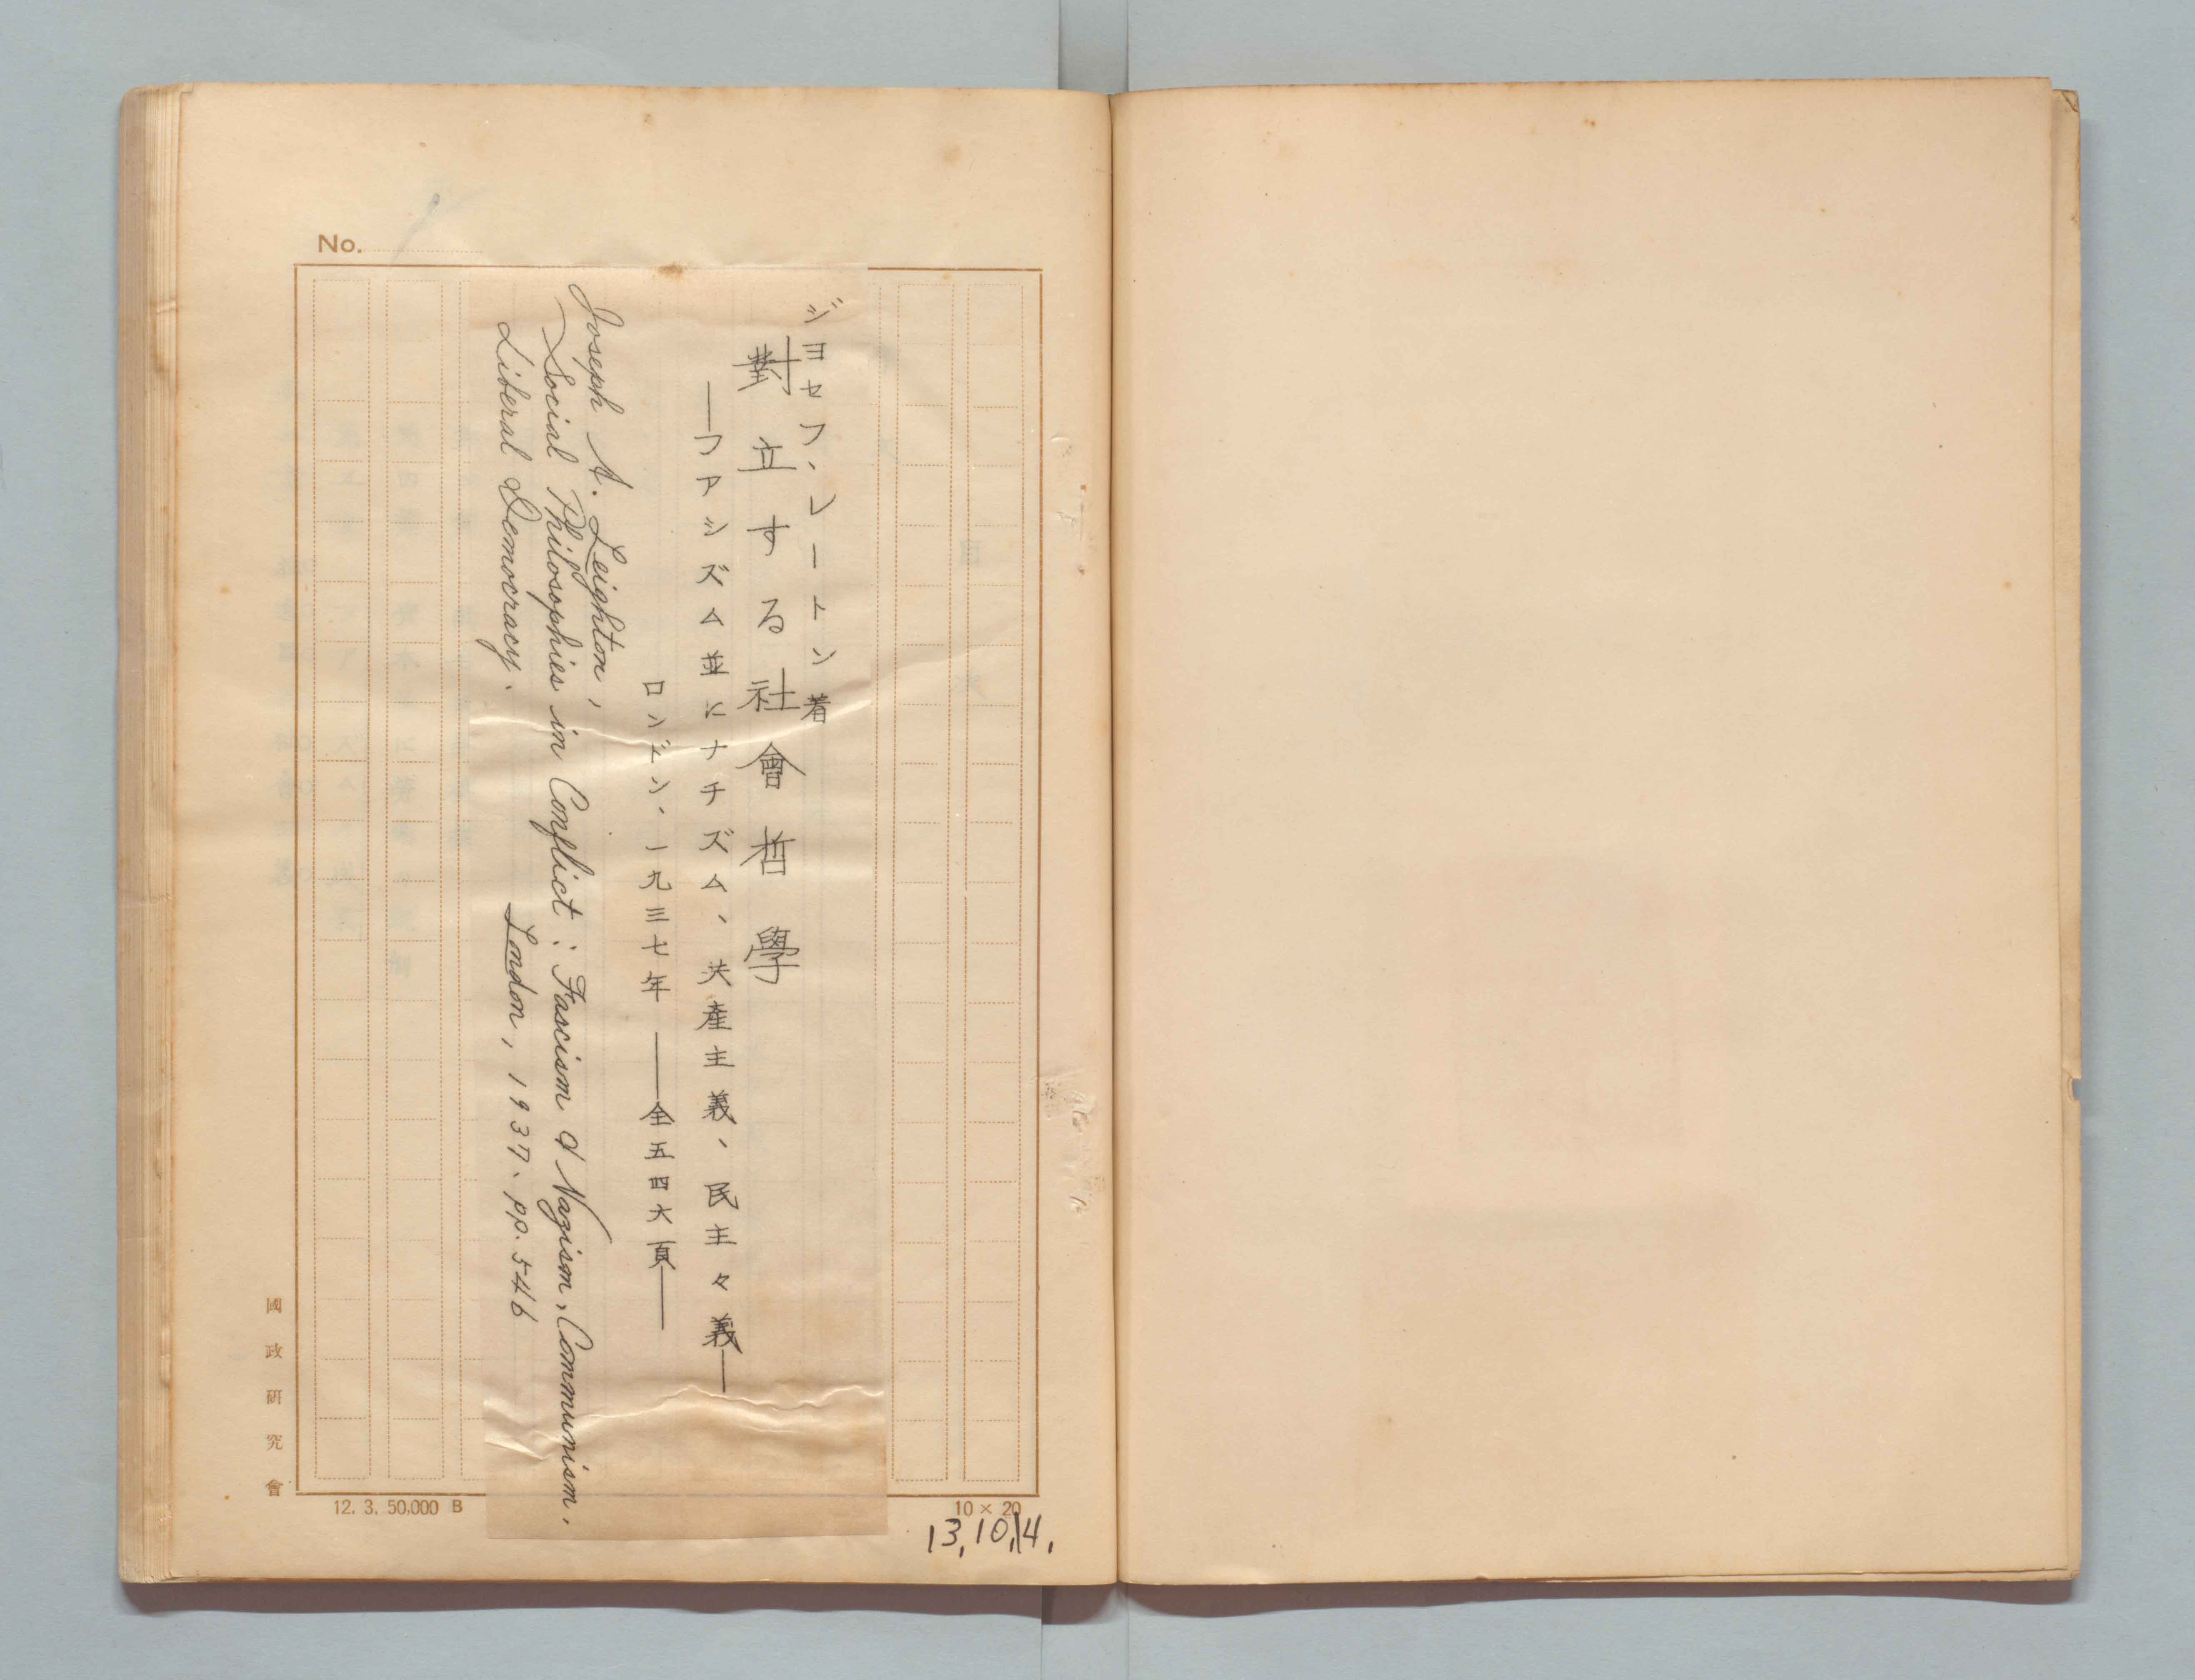 No.
ジヨセフ、レートン著
對立する社會哲學
——フアッシズム並にナチズム、共産主義、民主々義——
ロンドン、一九三七年——全五四六頁——
Joseph A. Leighton,
Social Philosophies in Conflict: Fascism & Nazism, Communism,
Liberal Democracy. London, 1937、pp.546
國政研究會
12. 3. 50,000 B
10 × 20
13,10,14,